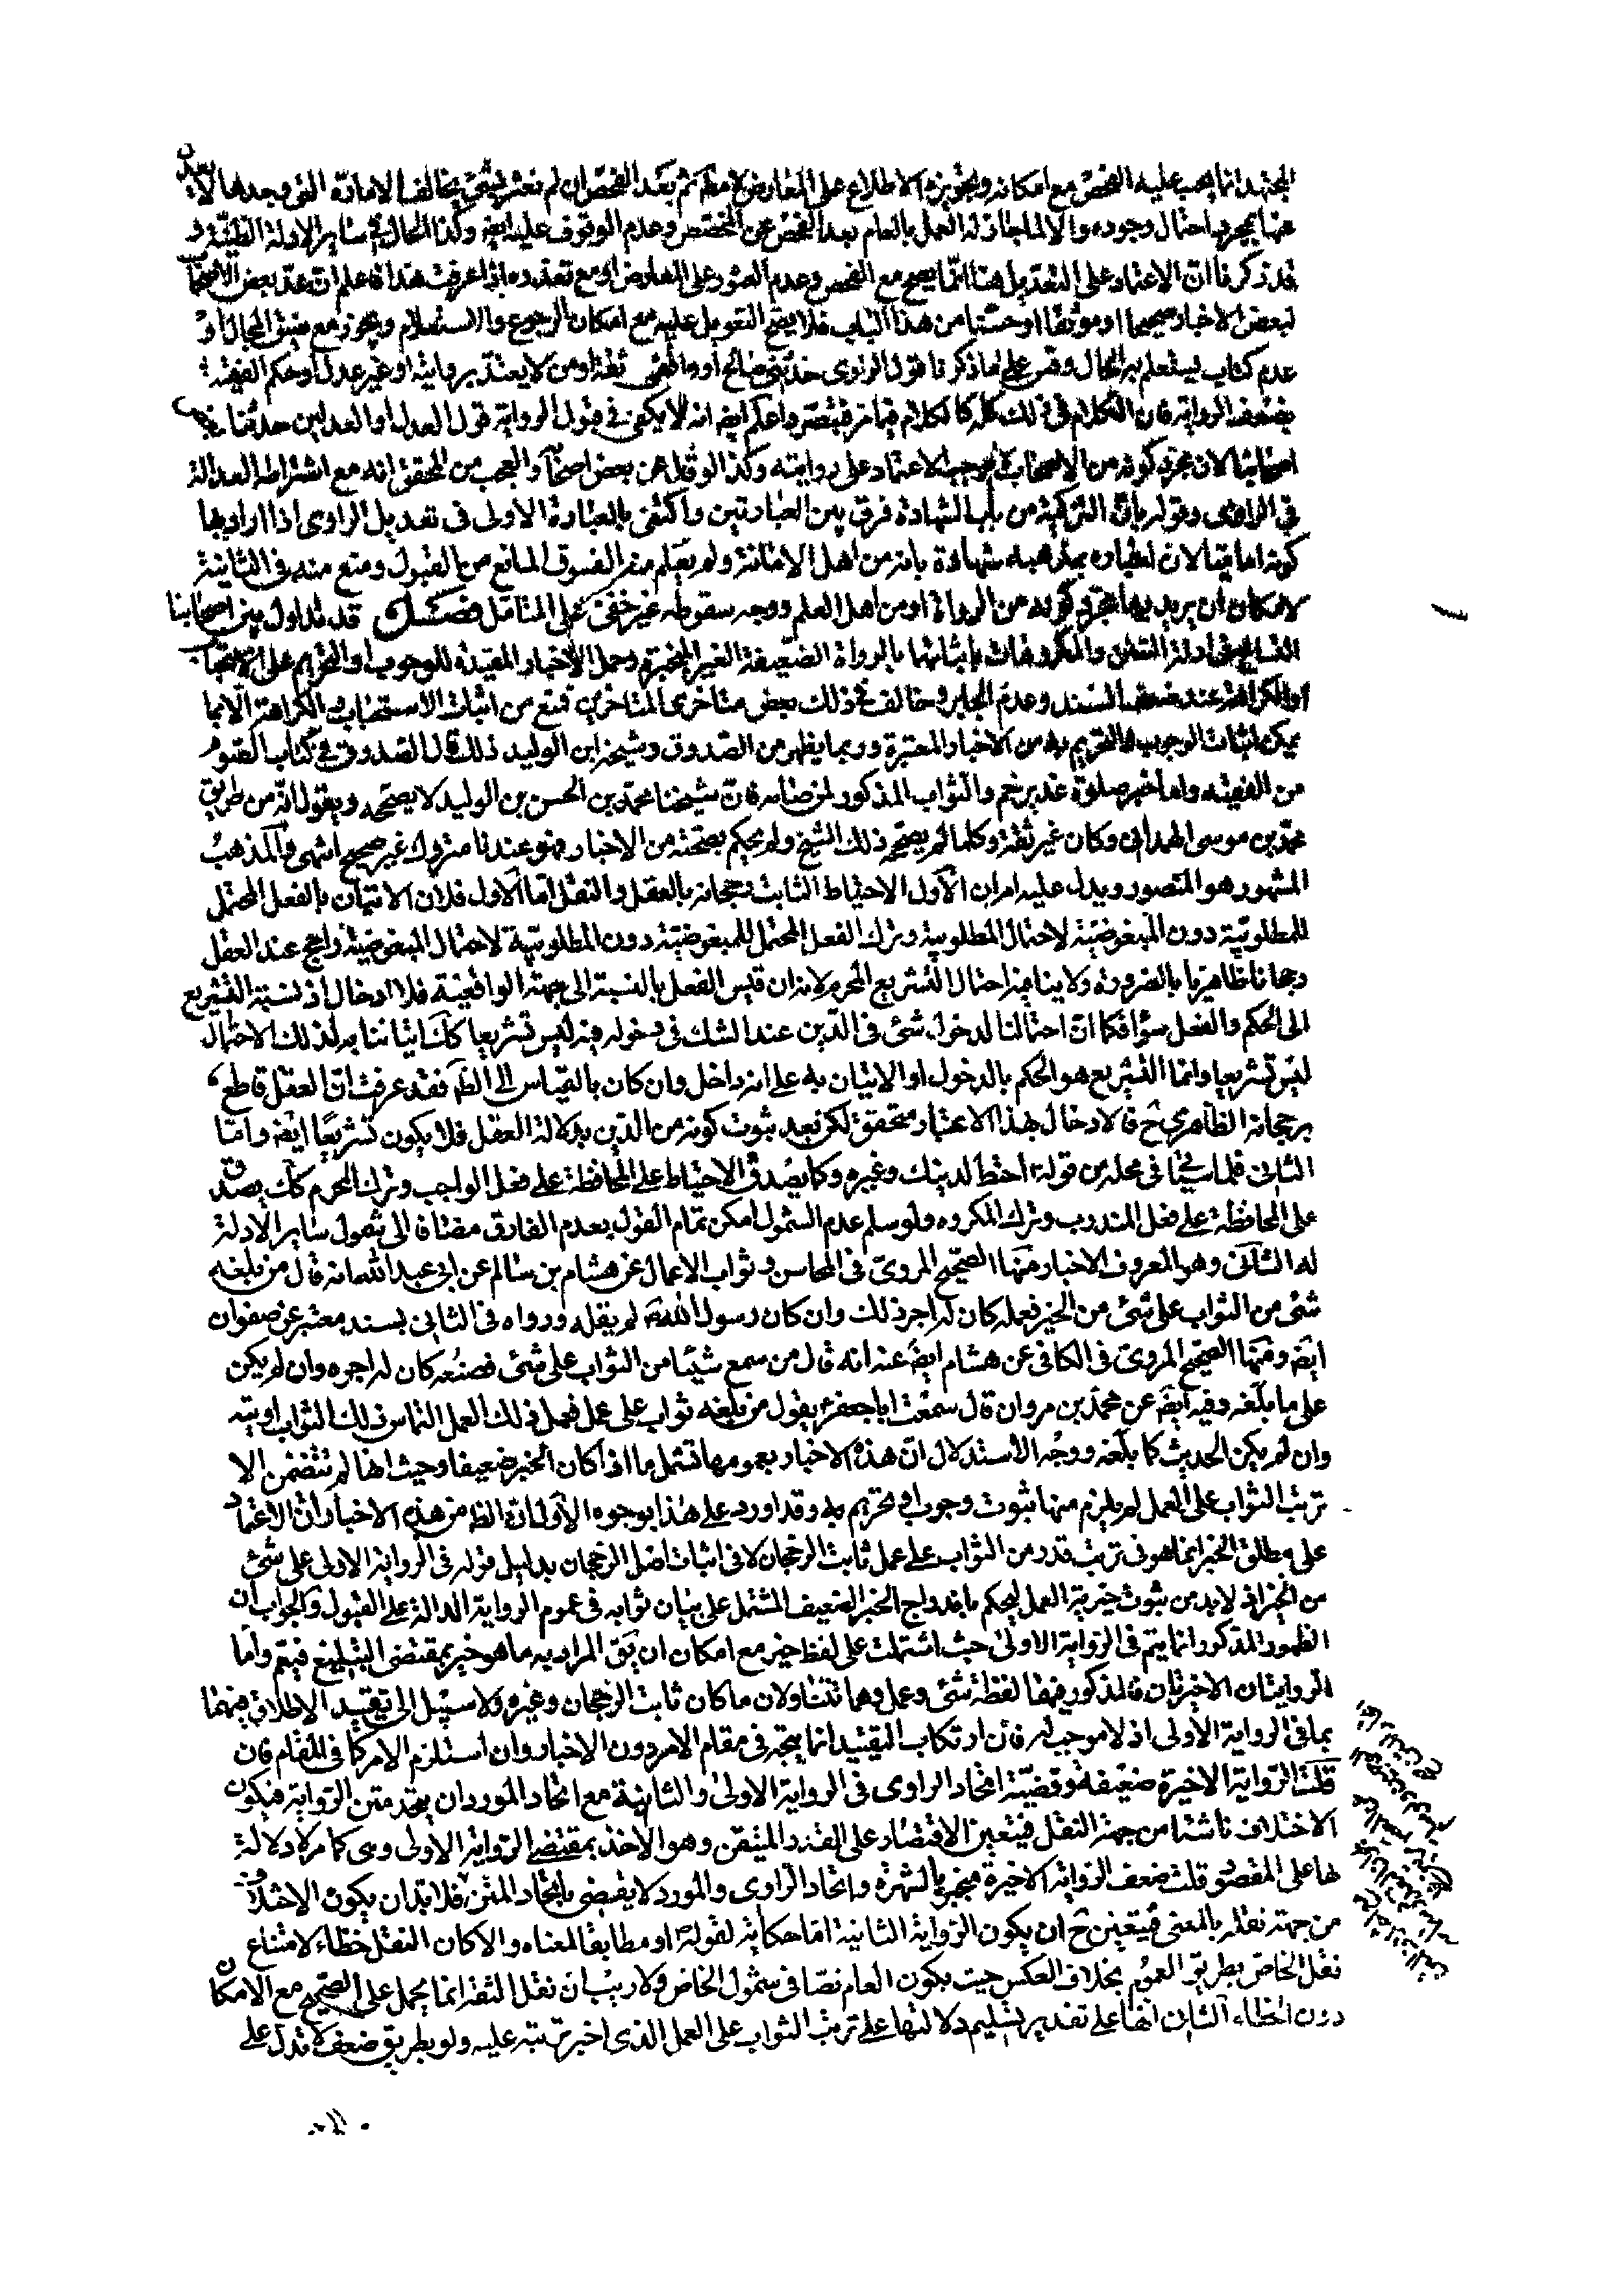 المجتهد انما يجب عليه الفحص مع امكانه وتجويزه الاطلاع على المعارض لا مطلقا ثم بعد الفحص ان لم نعثر بشئ يخالف الامارة التى وجدها لا يعدل
عنها بمجرد احتمال وجوده والا لما جاز له العمل بالعام بعد الفحص عن المخصص وعدم الوقوف عليه ايضا وكذا الحال فى ساير الادلة الظنية و
قد ذكرنا ان الاعتماد على التعديل هنا انما يصح مع الفحص وعدم العثور على المعارض او مع تعذره اذا عرفت هذا فاعلم ان عد بعض الاصحاب
لبعض الاخبار صحيحا او موثقا او حسنا من هذا الباب فلا يصح التعويل عليه مع امكان الرجوع والاستعلام ويجوز مع ضيق المجال او
عدم كتاب يستعلم به الحال وقس على ما ذكرنا قول الراوى حدثنى صالح او ثقة او من لا يعتد بروايته او غير عدل او حكم الفقيه
بضعف الرواية فان الكلام فى ذلك كله كالكلام فيما مر فتبصر واعلم ايضا انه لا يكفى فى قبول الرواية قول العدل او العدلين حدثنا بعض
اصحابنا لان مجرد كونه من الاصحاب لا يوجب الاعتماد على روايته وكذا لو قال عن بعض اصحابنا والعجب من المحقق انه مع اشتراطه العدالة
فى الراوى وقوله بان التزكية من باب الشهادة فرق بين العبارتين واكتفى بالعبارة الاولى فى تعديل الراوى اذا اراد بها
كونه اماميا لان اخباره بمذهبه شهادة بانه من اهل الامانة ولم يعلم منه الفسوق المانع من القبول ومنع منه فى الثانية
لامكان ان يريد بها مجرد كونه من الرواة او من اهل العلم ووجه سقوطه غير خفى على المتامل فصل قد تداول بين اصحابنا
التسامح فى ادلة السنن والمكروهات باثباتها بالرواة الضعيفة الغير المنجبرة وحمل الاخبار المقيدة للوجوب او التحريم على الاستحباب
او الكراهة عند ضعف السند وعدم الجابر وخالف فى ذلك بعض متاخرى المتاخرين فمنع من اثبات الاستحباب والكراهة الا بما
يمكن اثبات الوجوب والتحريم به من الاخبار المعتبرة وربما يظهر من الصدوق وشيخه ابن الوليد ذلك قال الصدوق فى كتاب الصوم
من الفقيه واما خبر صلوة غدير خم والثواب المذكور لمن صامه فان شيخنا محمد بن الحسن بن الوليد لا يصححه ويقول انه من طريق
محمد بن موسى الهمدانى وكان غير ثقة وكلما لم يصححه ذلك الشيخ ولم يحكم بصحته من الاخبار فهو عندنا متروك غير صحيح انتهى والمذهب
المشهور هو المنصور ويدل عليه امران الاول الاحتياط الثابت رجحانه بالعقل والنقل اما الاول فلان الاتيان بالفعل المحتمل
للمطلوبية دون المبغوضية لاحتمال المطلوبية وترك الفعل المحتمل للمبغوضية دون المطلوبية لاحتمال المبغوضية راجح عند العقل
رجحانا ظاهريا بالضرورة ولا ينافيه احتمال التشريع المحرم لانه ان قيس الفعل بالنسبة الى جهته الواقعية فلا ادخال اذ نسبة التشريع
الى الحكم والفعل سواء فكما ان احتمالنا لدخول شئ فى الدين عند الشك فى دخوله فيه ليس تشريعا كك اتياننا به لذلك الاحتمال
ليس تشريعا وانما التشريع هو الحكم بالدخول او الاتيان به على انه داخل وان كان بالقياس الى الظ فقد عرفت ان العقل قاطع
برجحانه الظاهرى ح فالادخال بهذا الاعتبار متحقق لكن بعد ثبوت كونه من الدين بدلالة العقل فلا يكون تشريعا ايضا واما
الثانى فلما سيجئ فى محله من قوله احتط لدينك وغيره وكما يصدق الاحتياط على المحافظة على فعل الواجب وترك المحرم كك يصدق
على المحافظة على فعل المندوب وترك المكروه ولو سلم عدم الشمول امكن تمام القول بعدم الفارق مضافا الى شمول ساير الادلة
له الثانى وهو المعروف الاخبار منها الصحيح المروى فى المحاسن وثواب الاعمال عن هشام بن سالم عن ابى عبد الله انه قال من بلغه
شئ من الثواب على شئ من الخير فعمله كان له اجر ذلك وان كان رسول الله ص لم يقله ورواه فى الثانى بسند معتبر عن صفوان
ايضا ومنها الصحيح المروى فى الكافى عن هشام ايضا عنه انه قال من سمع شيئا من الثواب على شئ فصنعه كان له اجره وان لم يكن
على ما بلغه وفيه ايضا عن محمد بن مروان قال سمعت ابا جعفر ع يقول من بلغه ثواب على عمل فعمل ذلك العمل التماس ذلك الثواب اوتيه
وان لم يكن الحديث كما بلغه ووجه الاستدلال ان هذه الاخبار بعمومها تشمل ما اذا كان الخبر ضعيفا وحيث انها لم تتضمن الا
ترتب الثواب على العمل لم يلزم منها ثبوت وجوب او تحريم به وقد اورد على هذا بوجوه الاول ان الظ من هذه الاخبار ان الاعتماد
على مطلق الخبر انما هو فى ترتب قدر من الثواب على عمل ثابت الرجحان لا فى اثبات اصل الرجحان بدليل قوله فى الرواية الاولى على شئ
من الخير اذ لا بد من ثبوت خيرية العمل ليحكم باندراج الخبر الضعيف المشتمل على بيان ثوابه فى عموم الرواية الدالة على القبول والجواب ان
الظهور المذكور انما يتم فى الرواية الاولى حيث اشتملت على لفظ خير مع امكان ان يق المراد به ما هو خير بمقتضى التبليغ فيتم واما
الروايتان الاخيرتان فالمذكور فيهما لفظة شئ وعمل وهما تتناولان ما كان ثابت الرجحان وغيره ولا سبيل الى تقييد الاطلاق فيهما
بما فى الرواية الاولى اذ لا موجب له فان ارتكاب التقييد انما يتجه فى مقام الامر دون الاخبار وان استلزم الامر كما فى المقام فان
قلت الرواية الاخيرة ضعيفة وقضية اتحاد الراوى فى الرواية الاولى والثانية مع اتحاد المورد ان يتحد متن الرواية فيكون
الاختلاف ناشئا من جهة النقل فيتعين الاقتصار على القدر المتيقن وهو الاخذ بمقتضى الرواية الاولى وهى كما مر لا دلالة
لها على المقصود قلت ضعف الرواية الاخيرة منجبر بالشهرة واتحاد الراوى والمورد لا يقتضى باتحاد المتن فلا بد ان يكون الاختلاف
من جهة نقله بالمعنى فيتعين ح ان يكون الرواية الثانية اما حكاية لقوله او مطابقا لمعناه والا كان النقل خطاء لامتناع
نقل الخاص بطريق العموم بخلاف العكس حيث يكون العام نصا فى شمول الخاص ولا ريب ان نقل الثقة انما يحمل على الصحيح مع الامكان
دون الخطاء الثانى انها على تقدير تسليم دلالتها على ترتب الثواب على العمل الذى اخبر بترتبه عليه ولو بطريق ضعف لا تدل على